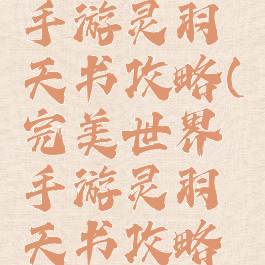 手游灵羽
天书攻略(
完美世界
手游灵羽
天书攻略